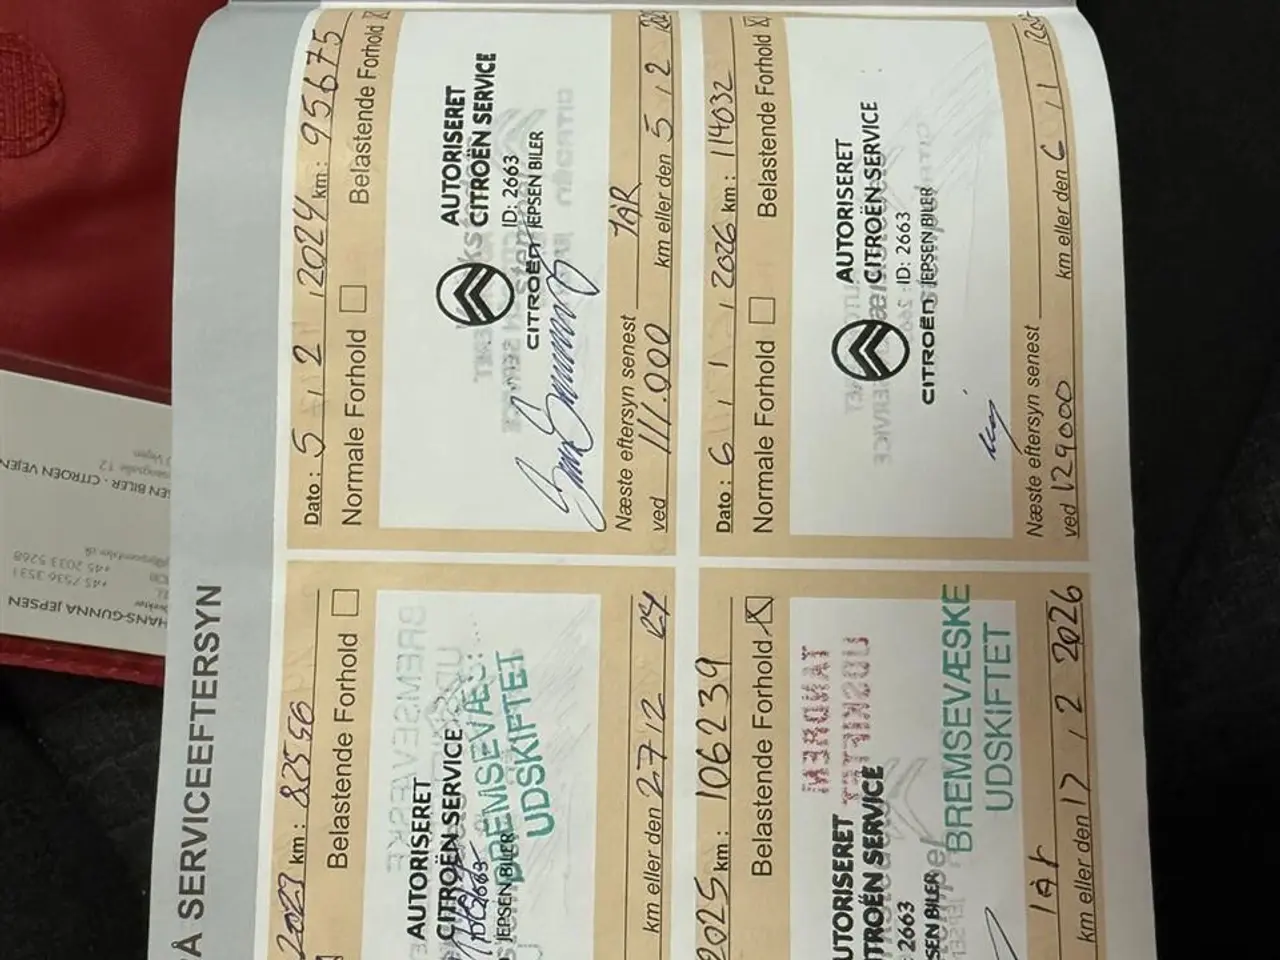 PÅ SERVICEEFTERSYN
2023 km : 82556
Belastende Forhold
AUTORISERET
CITROËN SERVICE
2663
JEPSEN BILER
BREMSEVÆSKE
UDSKIFTET
km eller den 27 12
Dato : 5 / 2 / 2024 km : 95675
Normale Forhold
Belastende Forhold X
AUTORISERET
CITROËN SERVICE
ID: 2663
CITROËN JEPSEN BILER
Næste eftersyn senest 1ÅR
ved 111.000 km eller den 5 / 2
2025 km : 106239
Belastende Forhold X
AUTORISERET
CITROËN SERVICE
2663
JEPSEN BILER
BREMSEVÆSKE
UDSKIFTET
1år
km eller den 17 / 2 2026
Dato : 6 / 1 / 2026 km : 114032
Normale Forhold
Belastende Forhold X
AUTORISERET
CITROËN SERVICE
ID: 2663
CITROËN JEPSEN BILER
Næste eftersyn senest
ved 129000 km eller den 6 / 1
JEPSEN BILER · CITROËN VEJEN
12
Vejen
HANS-GUNNA JEPSEN
+45 7536 3531
+45 2033 5268